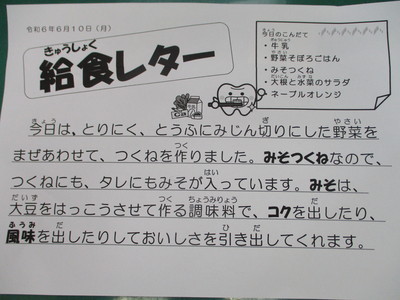 令和6年6月10日(月)
給食レター
今日のこんだて
・牛乳
・野菜そぼろごはん
・みそつくね
・大根と水菜のサラダ
・ネーブルオレンジ
今日は、とりにく、とうふにみじん切りにした野菜を
まぜあわせて、つくねを作りました。みそつくねなので、
つくねにも、タレにもみそが入っています。みそは、
大豆をはっこうさせて作る調味料で、コクを出したり、
風味を出したりしておいしさを引き出してくれます。